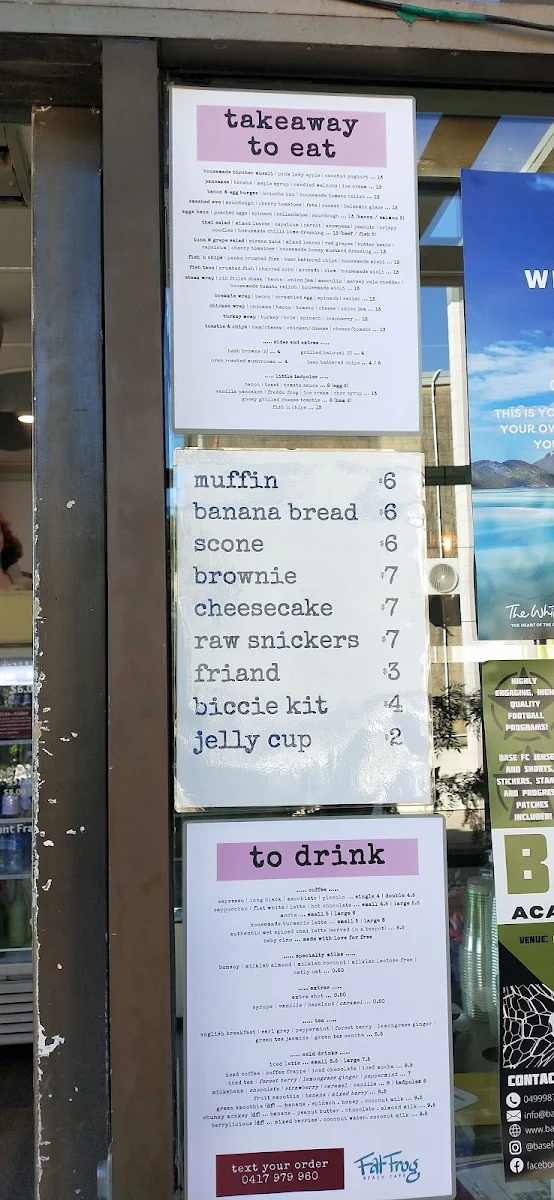 takeaway
to eat
housemade bircher muesli | pink lady apple | coconut yoghurt ... 13
pancakes | banana | maple syrup | candied walnuts | ice cream ... 13
bacon & egg burger | brioche bun | housemade tomato relish ... 13
smashed avo | sourdough | cherry tomatoes | feta | rocket | balsamic glaze ... 13
eggs bene | poached eggs | spinach | hollandaise | sourdough ... 13 (bacon / salmon 5)
thai salad | mixed leaves | capsicum | carrot | snowpeas | peanuts | crispy
noodles | housemade chilli lime dressing ... 13 (beef / fish 5)
tuna & grape salad | sirena tuna | mixed leaves | red grapes | butter beans |
capsicum | cherry tomatoes | housemade honey mustard dressing ... 13
fish 'n chips | panko crumbed fish | beer battered chips | housemade aioli ... 13
fish taco | crumbed fish | charred corn | avocado | slaw | housemade aioli ... 13
steak wrap | rib fillet steak | bacon | onion jam | mesculin | mersey vale cheddar |
housemade tomato relish | housemade aioli ... 13
breakkie wrap | bacon | scrambled egg | spinach | relish ... 13
chicken wrap | chicken | bacon | tomato | cheese | onion jam ... 13
turkey wrap | turkey | brie | spinach | cranberry ... 13
toastie & chips | ham/cheese | chicken/cheese | cheese/tomato ... 13
..... sides and extras .....
hash browns (2) ... 4 grilled haloumi (2) ... 4
oven roasted mushrooms ... 4 beer battered chips ... 4 / 8
..... little tadpoles .....
bacon | toast | tomato sauce ... 8 (egg 2)
vanilla pancakes | freddo frog | ice cream | choc syrup ... 13
gooey grilled cheese toastie ... 8 (ham 2)
fish 'n chips ... 13
muffin $6
banana bread $6
scone $6
brownie $7
cheesecake $7
raw snickers $7
friand $3
biccie kit $4
jelly cup $2
to drink
..... coffee .....
espresso | long black | macchiato | piccolo ... single 4 | double 4.5
cappuccino | flat white | latte | hot chocolate ... small 4.5 | large 5.5
mocha ... small 5 | large 6
housemade turmeric latte ... small 5 | large 6
authentic wet spiced chai latte (served in a teapot) ... 6.5
baby cino ... made with love for free
..... specialty milks .....
bonsoy | milklab almond | milklab coconut | milklab lactose free |
oatly oat ... 0.50
..... extras .....
extra shot ... 0.50
syrups | vanilla / hazelnut / caramel ... 0.50
..... tea .....
english breakfast | earl grey | peppermint | forest berry | lemongrass ginger |
green tea jasmine | green tea sencha ... 5.5
..... cold drinks .....
iced latte ... small 6.5 | large 7.5
iced coffee | coffee frappe | iced chocolate | iced mocha ... 8.5
iced tea | forest berry | lemongrass ginger | peppermint ... 7
milkshake | chocolate | strawberry | caramel | vanilla ... 8 | tadpoles 6
fruit smoothie | banana / mixed berry ... 8.5
green smoothie (df) ... banana . spinach . honey . coconut milk ... 9.5
chunky monkey (df) ... banana . peanut butter . chocolate . almond milk ... 9.5
berrylicious (df) ... mixed berries . coconut water . coconut milk ... 9.5
text your order
0417 979 960
Fat Frog
BEACH CAFE
THIS IS YO
YOUR OW
YO
The Whit
THE HEART OF THE
HIGHLY
ENGAGING, HIGH
QUALITY
FOOTBALL
PROGRAMS!
BASE FC JERSE
AND SHORTS,
STICKERS, STAM
AND PROGRE
PATCHES
INCLUDED!
B
ACA
VENUE:
CONTAC
049998
info@ba
www.ba
@basef
faceboo